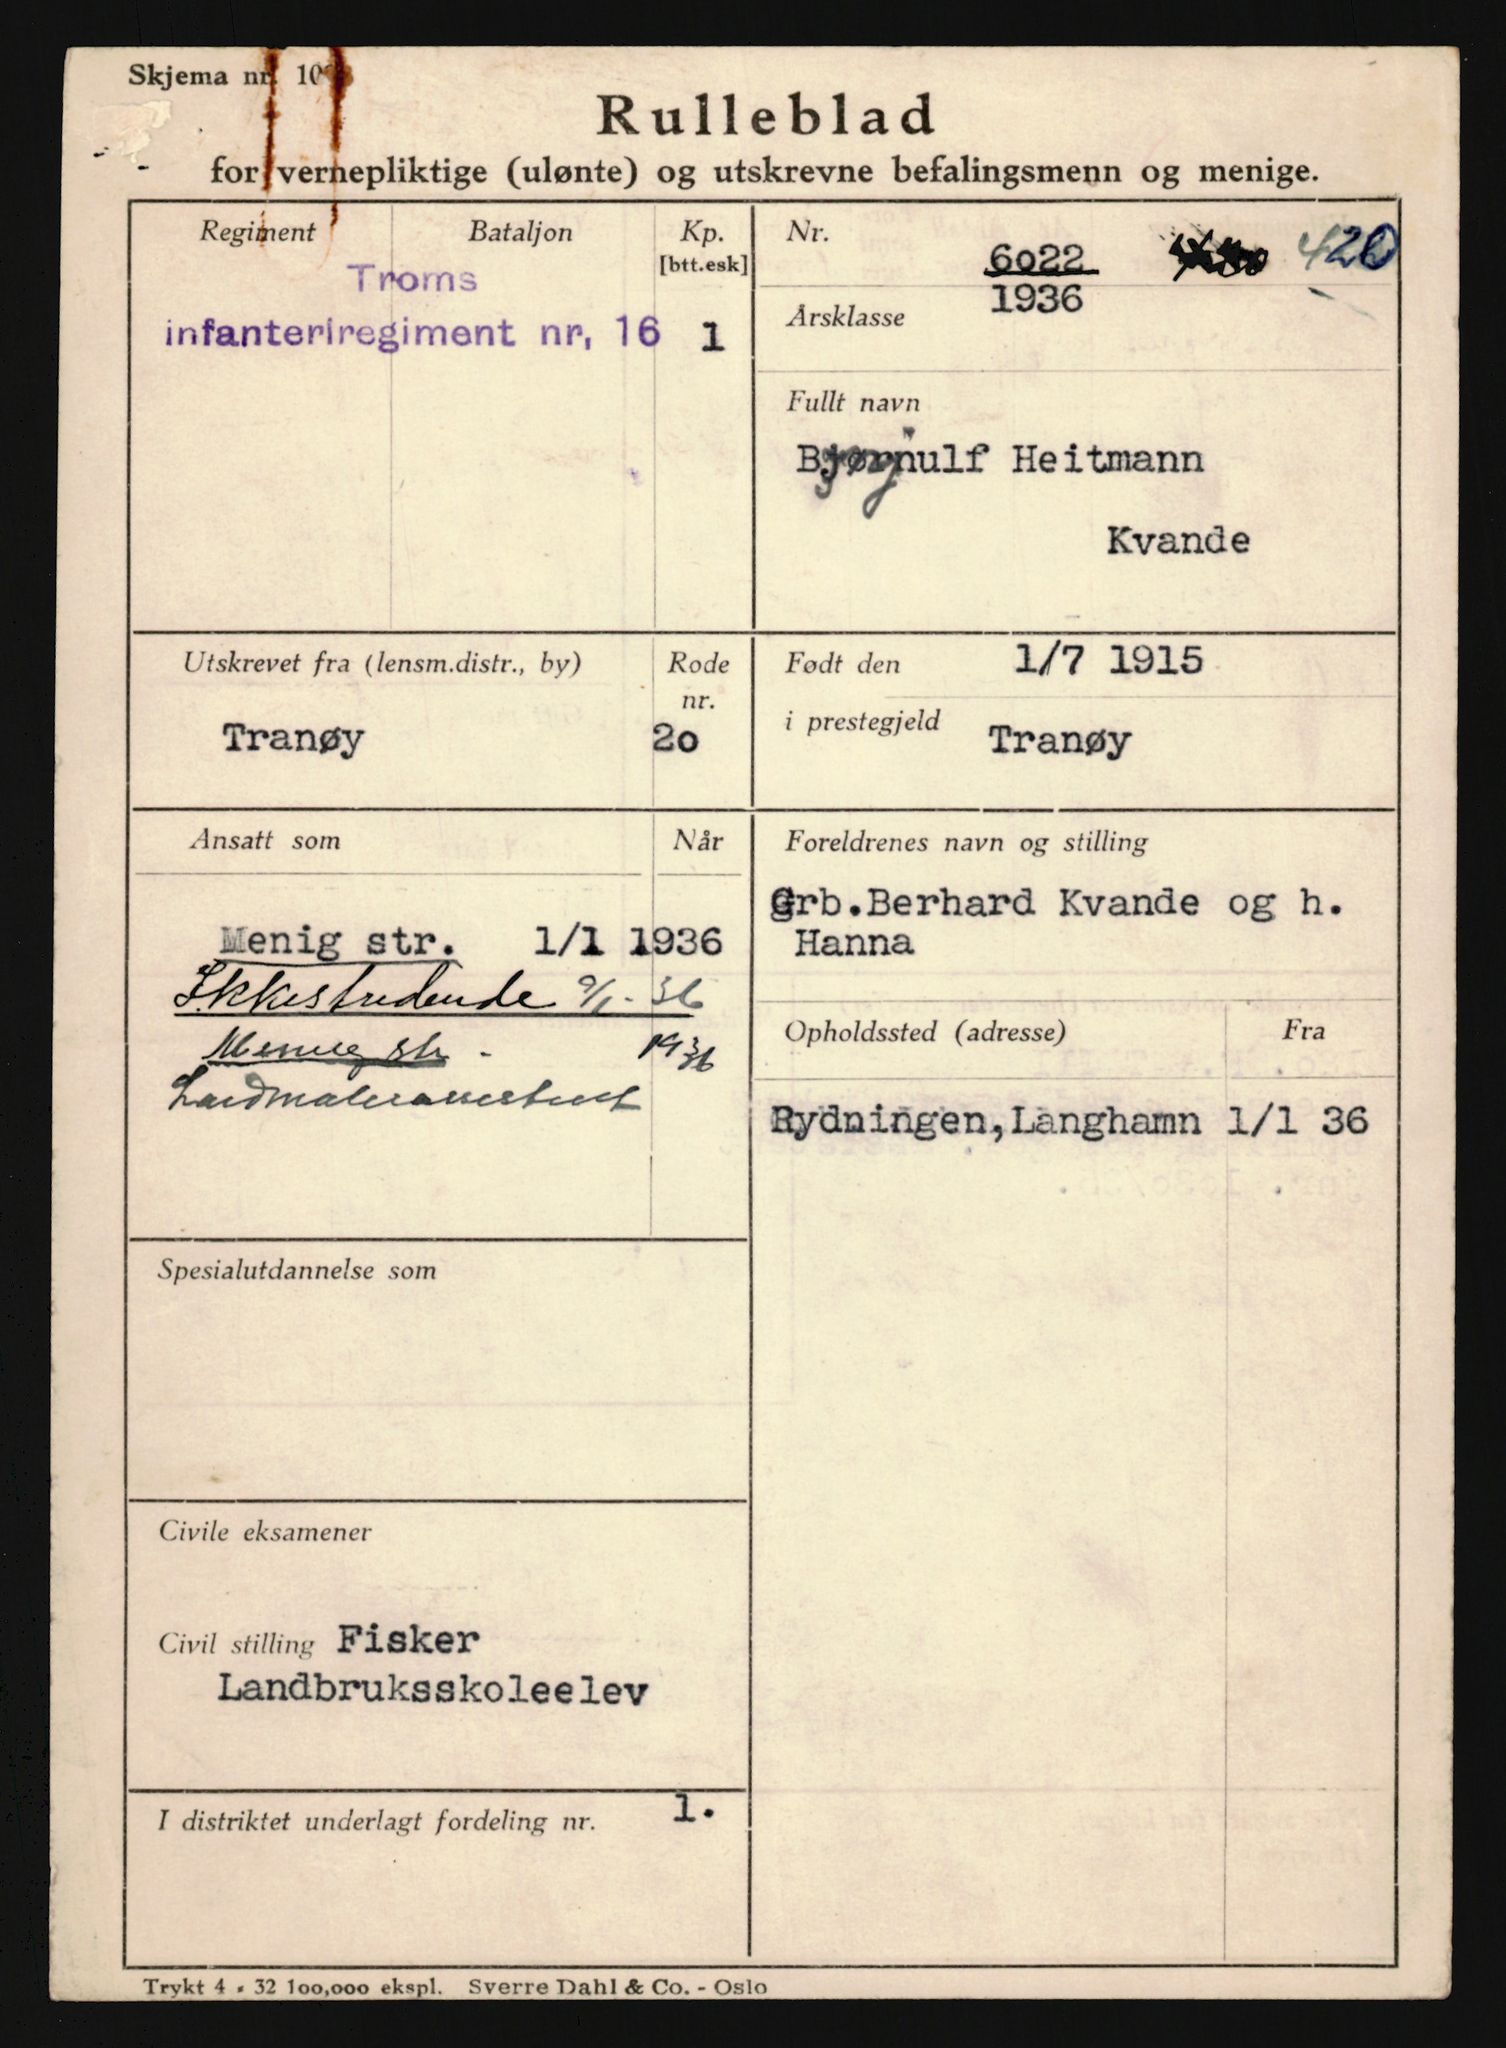 Skjema nr.
Rulleblad
for vernepliktige (ulønte) og utskrevne befalingsmenn og menige.
Regiment
Bataljon
Kp.
[btt.esk]
Troms
infanteriregiment nr, 16
1
Nr.
6022
420
Årsklasse
1936
Fullt navn
Heitmann
Kvande
Utskrevet fra (lensm.distr., by)
Rode
nr.
Tranøy
2o
Født den
1/7 1915
i prestegjeld
Tranøy
Ansatt som
Når
Menig str. 1/1 1936
Ikkestridende 9/1-36
Menig str - 1936
Foreldrenes navn og stilling
Grb.Berhard Kvande og h.
Hanna
Opholdssted (adresse)
Fra
Rydningen,Langhamn 1/1 36
Spesialutdannelse som
Civile eksamener
Civil stilling Fisker
Landbruksskoleelev
I distriktet underlagt fordeling nr. 1.
Trykt 4 - 32 100,000 ekspl. Sverre Dahl & Co. - Oslo